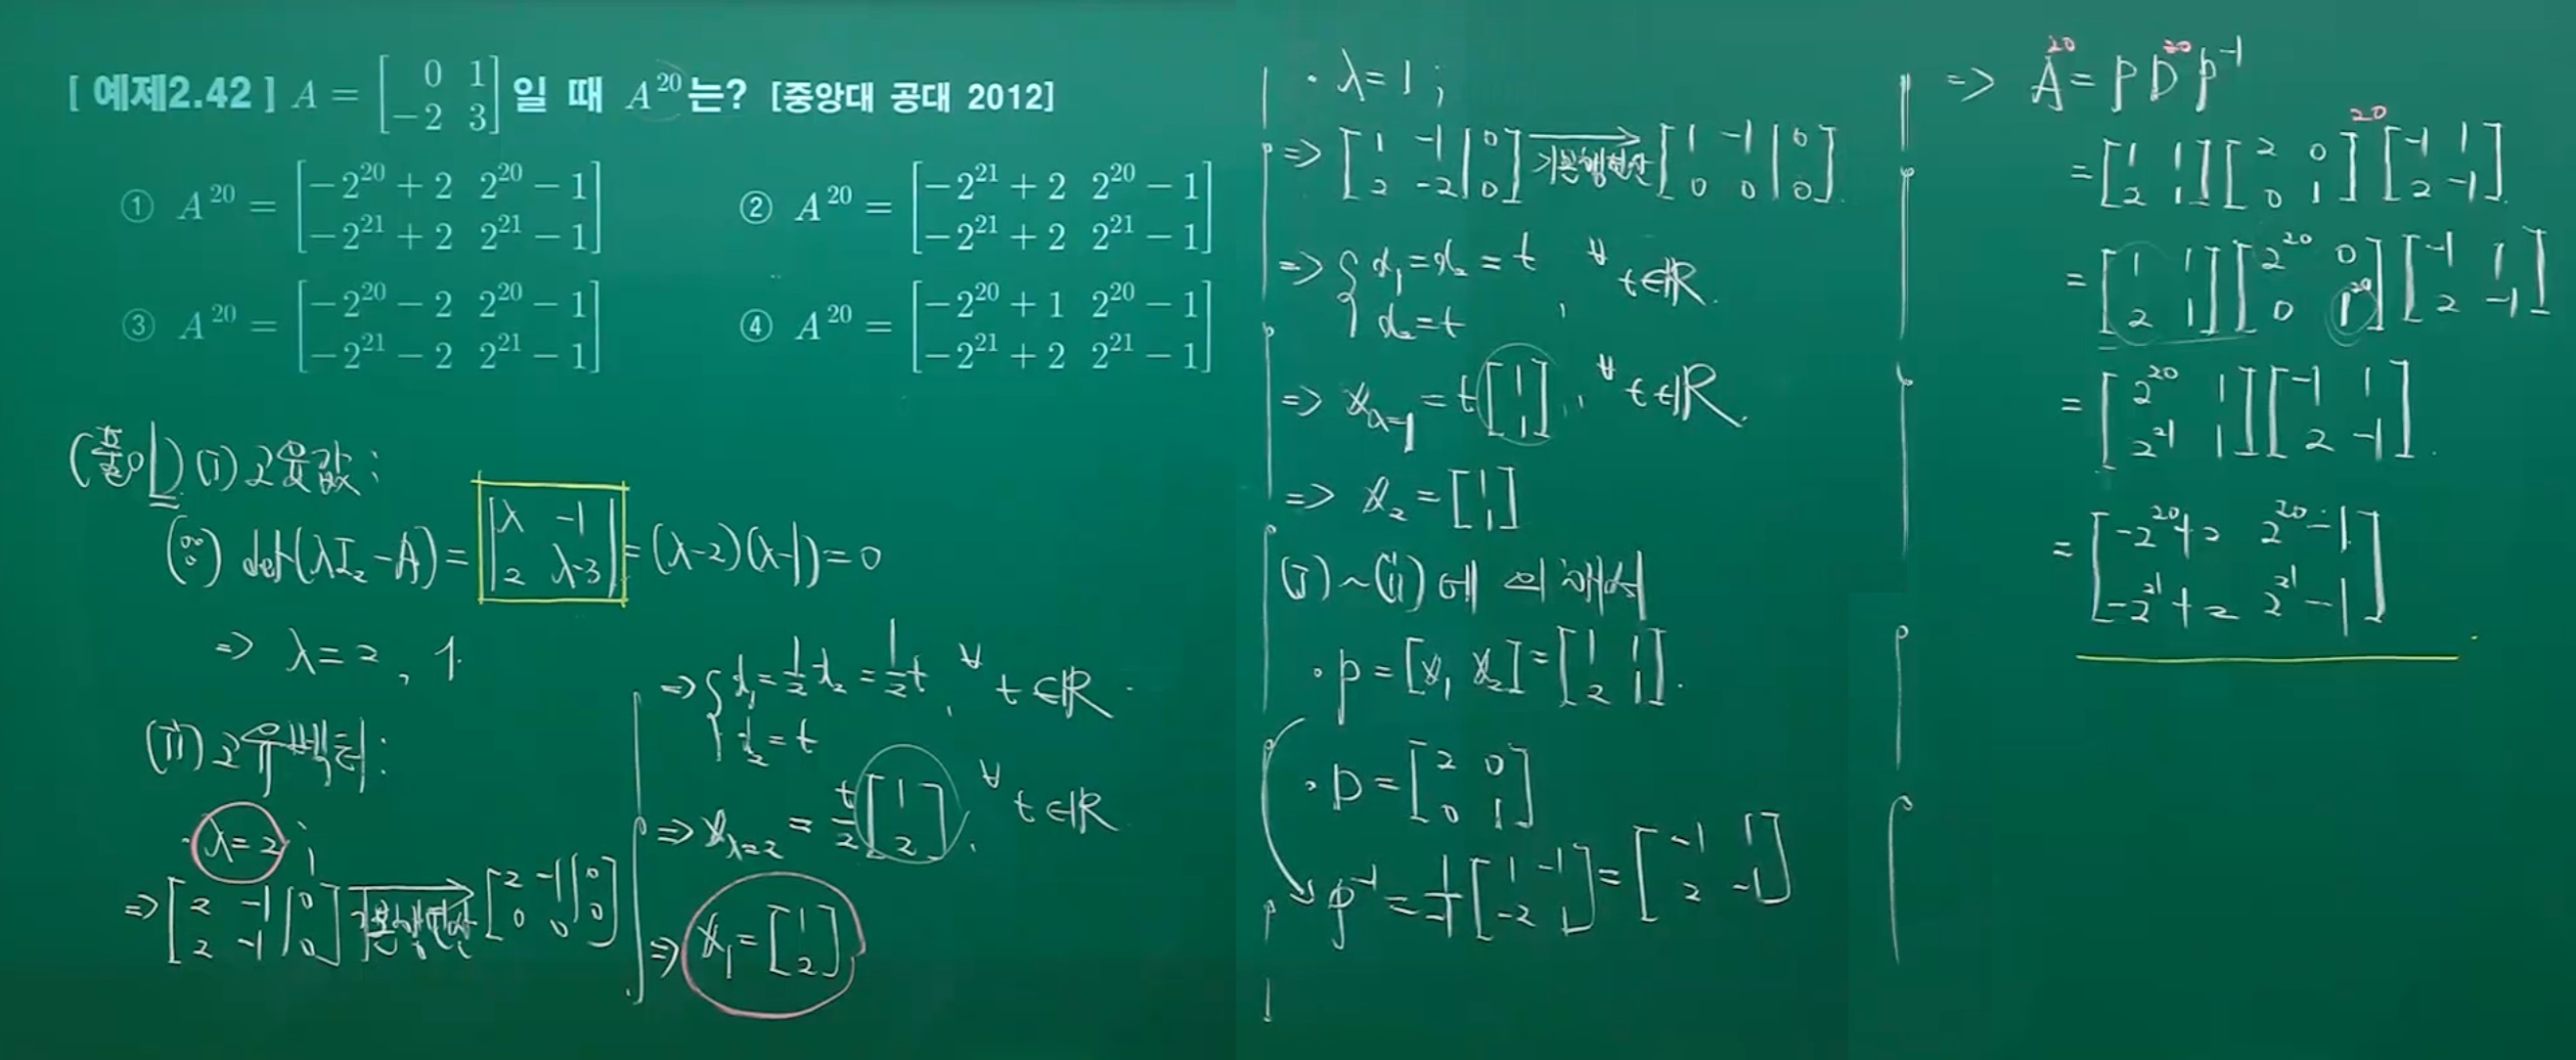 [ 예제2.42 ] A = [0 1; -2 3] 일 때 A^20 는? [중앙대 공대 2012]
① A^20 = [-2^20 + 2  2^20 - 1; -2^21 + 2  2^21 - 1]
② A^20 = [-2^21 + 2  2^20 - 1; -2^21 + 2  2^21 - 1]
③ A^20 = [-2^20 - 2  2^20 - 1; -2^21 - 2  2^21 - 1]
④ A^20 = [-2^20 + 1  2^20 - 1; -2^21 + 2  2^21 - 1]
(풀이) (i) 고유값 ;
(∵) det(λI₂ - A) = |λ -1; 2 λ-3| = (λ-2)(λ-1) = 0
=> λ = 2, 1.
(ii) 고유벡터 :
· λ = 2 ;
=> [2 -1 | 0; 2 -1 | 0] → 기본행연산 [2 -1 | 0; 0 0 | 0]
=> { x₁ = 1/2 x₂ = 1/2 t, ∀ t∈ℝ.
x₂ = t
=> x_λ=2 = t/2 [1; 2], ∀ t∈ℝ
=> x₁ = [1; 2]
· λ = 1 ;
=> [1 -1 | 0; 2 -2 | 0] → 기본행연산 [1 -1 | 0; 0 0 | 0].
=> { x₁ = x₂ = t, ∀ t∈ℝ.
x₂ = t
=> x_λ=1 = t [1; 1], ∀ t∈ℝ.
=> x₂ = [1; 1]
(i) ~ (ii) 에 의해서
· P = [x₁ x₂] = [1 1; 2 1].
· D = [2 0; 0 1]
P^-1 = 1/-1 [1 -1; -2 1] = [-1 1; 2 -1]
=> A^20 = P D^20 P^-1
= [1 1; 2 1] [2 0; 0 1]^20 [-1 1; 2 -1]
= [1 1; 2 1] [2^20 0; 0 1^20] [-1 1; 2 -1]
= [2^20 1; 2^21 1] [-1 1; 2 -1].
= [-2^20 + 2  2^20 - 1; -2^21 + 2  2^21 - 1]